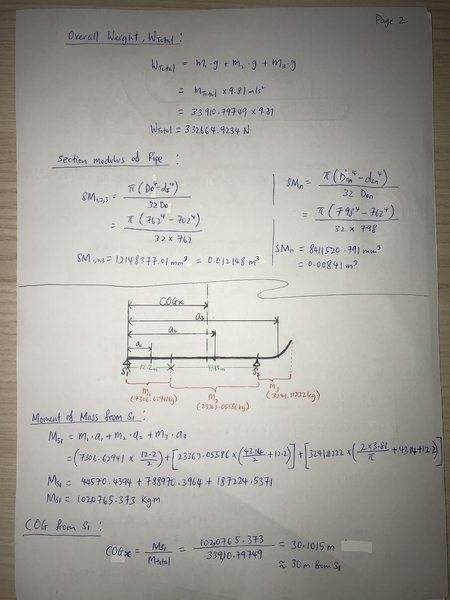 Page 2
Overall Weight, WTotal :
WTotal = m1·g + m2·g + m3·g
= mTotal × 9.81 m/s²
= 33910.79749 × 9.81
WTotal = 332664.9234 N
Section modulus of Pipe :
SM1,2,3 = π(Do⁴ - ds⁴) / 32 Do
= π(762⁴ - 702⁴) / 32 × 762
SM1,2,3 = 12148377.01 mm³ = 0.012148 m³
SMn = π(Don⁴ - dsn⁴) / 32 Don
= π(798⁴ - 762⁴) / 32 × 798
SMn = 8411520.791 mm³
= 0.00841 m³
COGx
a3
a2
a1
S1 12.2m 43.14m S2
m1
(7306.62941kg)
m2
(23363.05586kg)
m3
(3241.11222kg)
Moment of Mass from S1 :
Ms1 = m1·a1 + m2·a2 + m3·a3
= (7306.62941 × 12.2/2) + [23363.05586 × (43.14/2 + 12.2)] + [3241.11222 × (2×3.81/π + 43.14 + 12.2)]
Ms1 = 44570.4394 + 788970.3964 + 187224.5371
Ms1 = 1020765.373 Kgm
COG from S1 :
COGx = Ms1 / mtotal = 1020765.373 / 33910.79749 = 30.1015 m
≈ 30m from S1